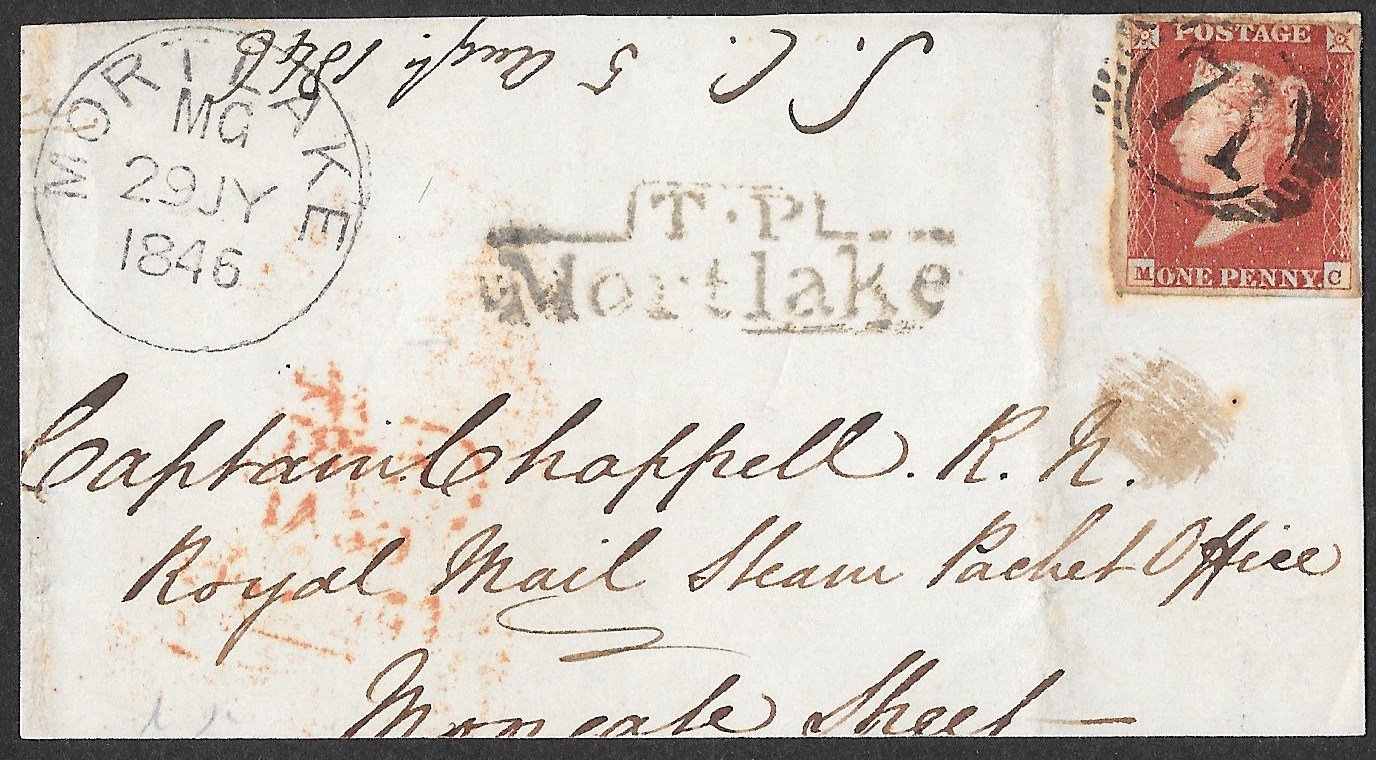 MORTLAKE
MG
29 JY
1846
J. C. 5 Augt. 1846
T.P
Mortlake
POSTAGE
77
M ONE PENNY. C
Captain Chappell. R. N.
Royal Mail Steam Packet Office
Moorgate Street